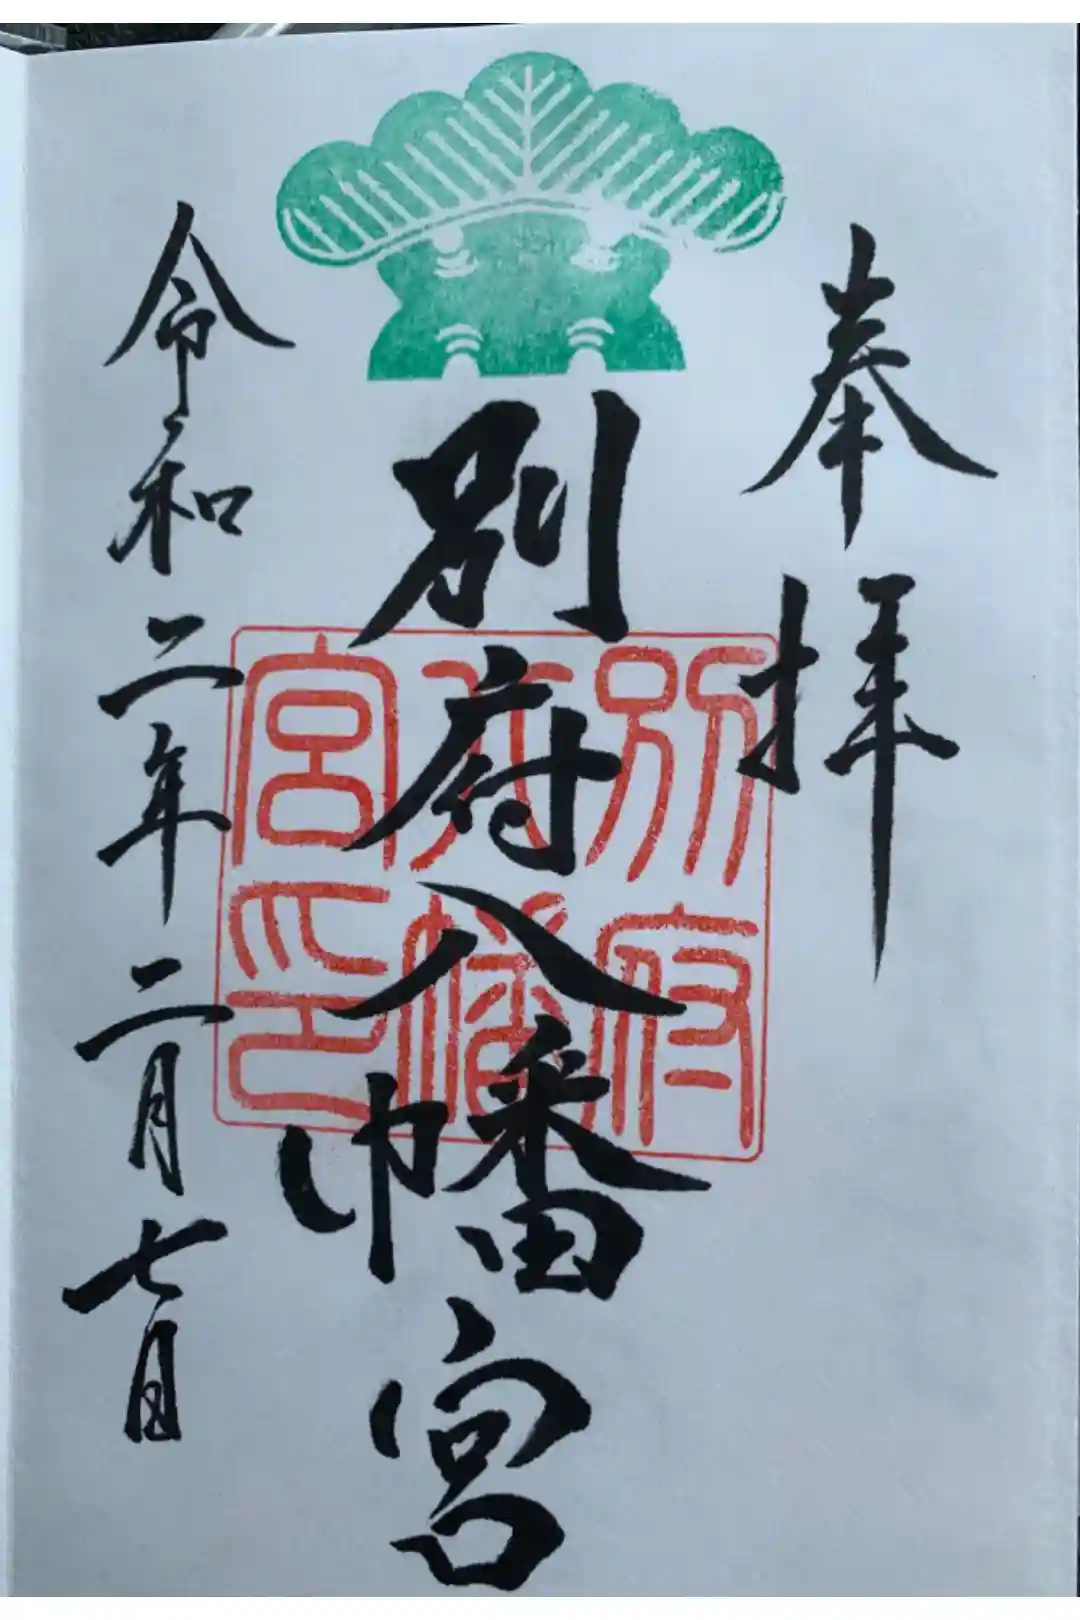 奉拝
別府八幡宮
別府八幡宮印
令和二年二月七日